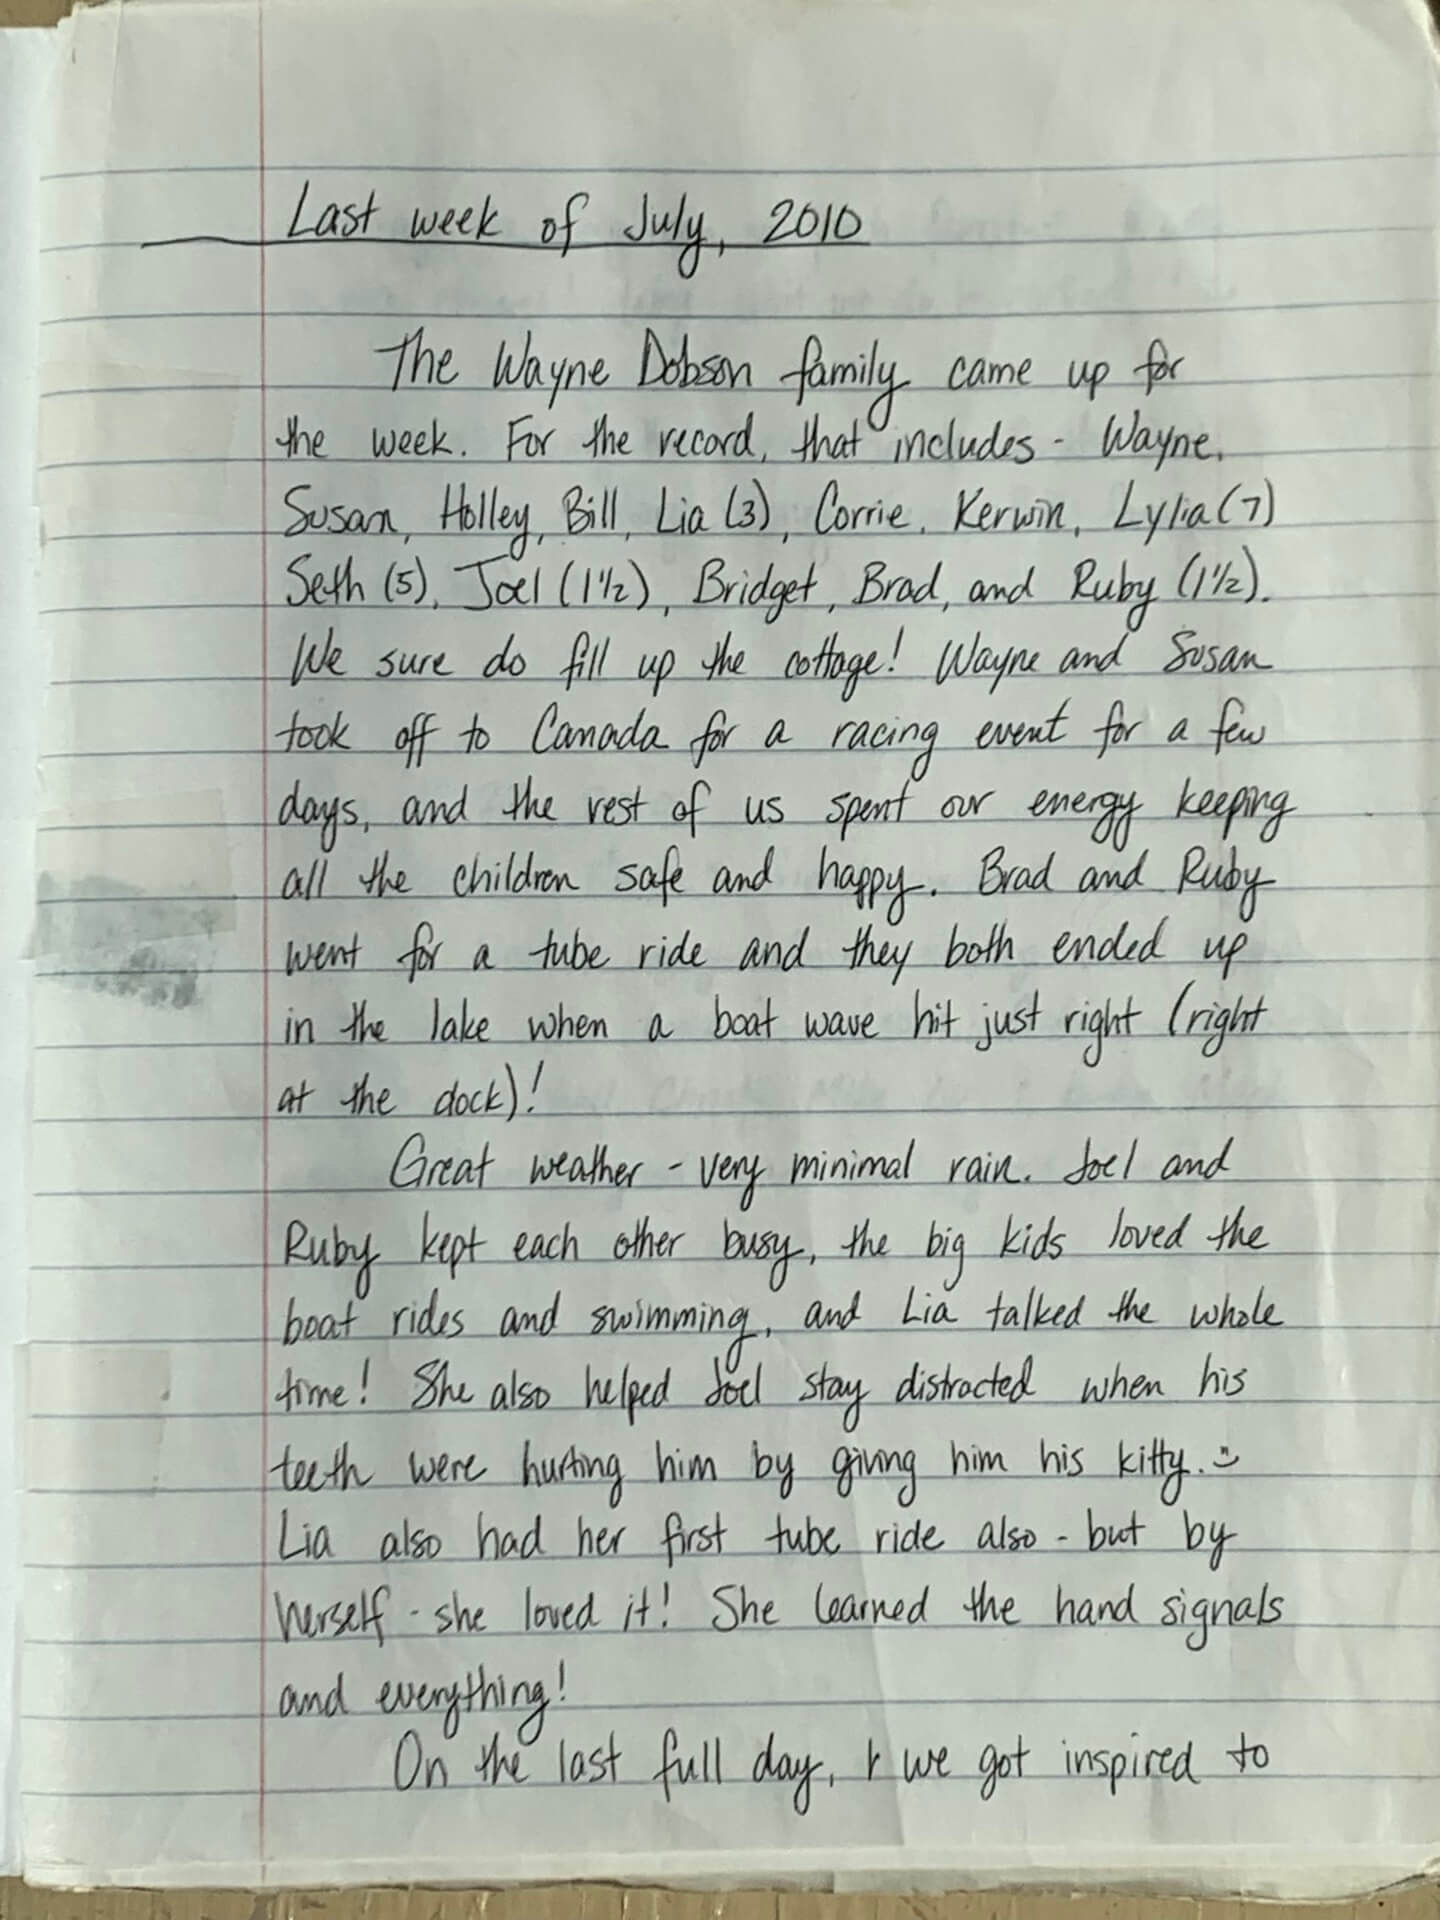 Last week of July, 2010
The Wayne Dobson family came up for
the week. For the record, that includes - Wayne,
Susan, Holley, Bill, Lia (3), Corrie, Kerwin, Lylia (7)
Seth (5), Joel (1½), Bridget, Brad, and Ruby (1½).
We sure do fill up the cottage! Wayne and Susan
took off to Canada for a racing event for a few
days, and the rest of us spent our energy keeping
all the children safe and happy. Brad and Ruby
went for a tube ride and they both ended up
in the lake when a boat wave hit just right (right
at the dock)!
Great weather - very minimal rain. Joel and
Ruby kept each other busy, the big kids loved the
boat rides and swimming, and Lia talked the whole
time! She also helped Joel stay distracted when his
teeth were hurting him by giving him his kitty. :)
Lia also had her first tube ride also - but by
herself - she loved it! She learned the hand signals
and everything!
On the last full day, we got inspired to